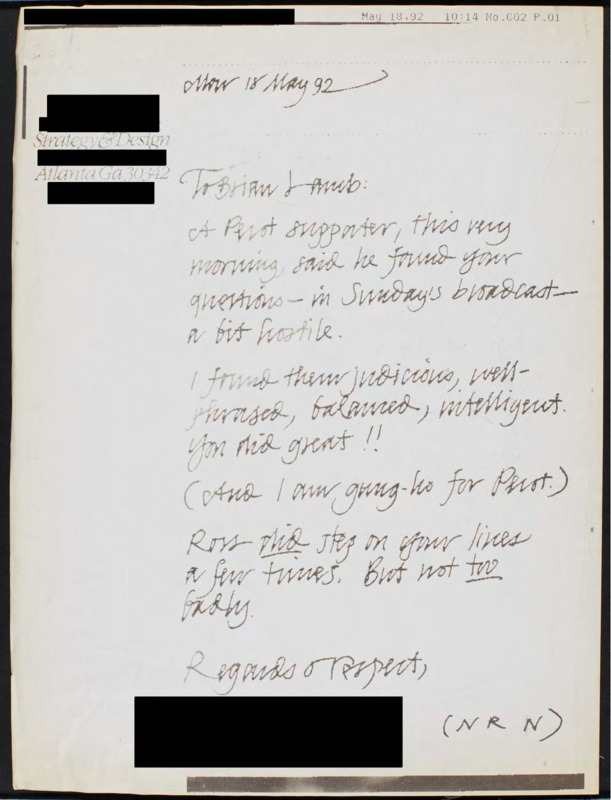 May 18,92 10:14 No.002 P.01
Mon 18 May 92
Strategy & Design
Atlanta Ga 30342
To Brian Lamb:
A Perot supporter, this very
morning, said he found your
questions — in Sunday's broadcast —
a bit hostile.
I found them judicious, well-
phrased, balanced, intelligent.
You did great !!
(And I am gung-ho for Perot.)
Ross did step on your lines
a few times. But not too
badly.
Regards & respect,
(N R N)